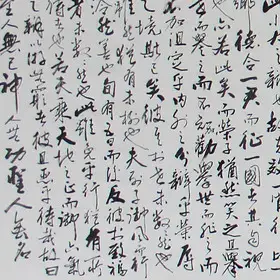 鄉德合一君而徵一國者其自視
亦若此矣而宋榮子猶然笑之且舉
世而譽之而不加勸舉世而非之而
不加沮定乎內外之分辯乎榮辱
之境斯已矣彼其於世未數數然也
雖然猶有未樹也夫列子御風而行
泠然善也旬有五日而後反彼於致福
者未數數然也此雖免乎行猶有所
待者也若夫乘天地之正而御六氣
之辯以遊無窮者彼且惡乎待哉故曰
人無己神人無功聖人無名